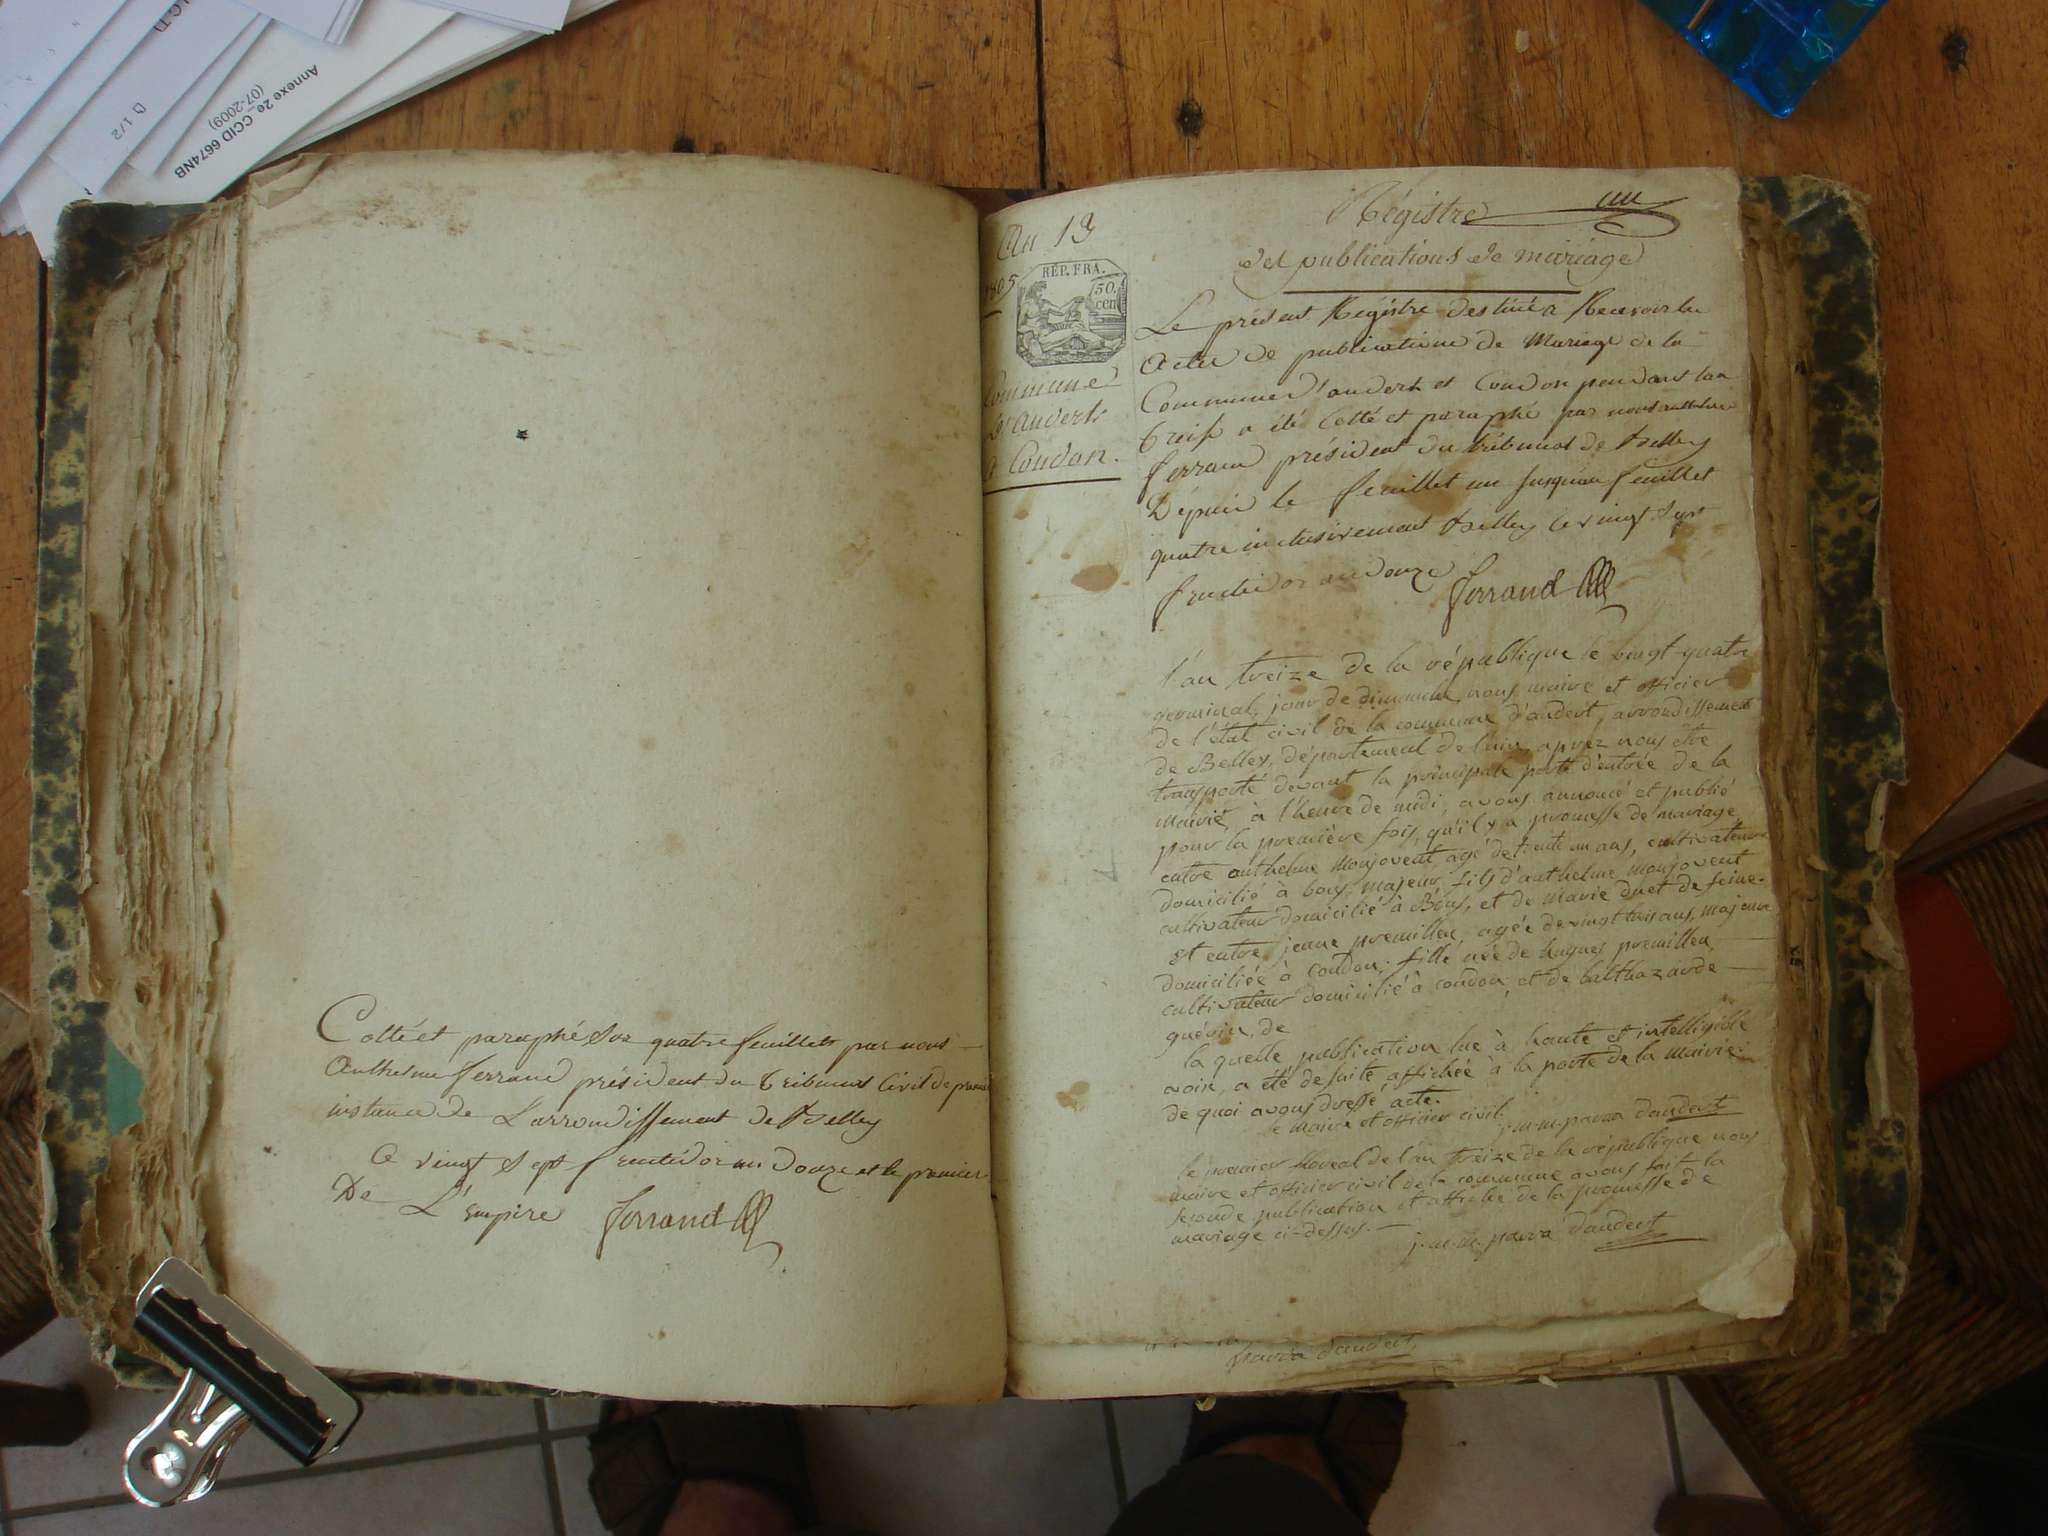 Annexe 2e_CCID 6674NB
(07-2009)
D 1/2
Cotté et paraphé Sur quatre feuillets par nous
Anthelme ferrand président du tribunal Civil de premi
instance de L'arrondissement de Belley
Ce vingt Sept fructidor an Douze et le premier
De L'Empire ferrand
An 13
1805
REP. FRA.
50.
cen
Commune
d'Andert
et Condon.
Régistre un
des publications de mariage
Le présent Régistre destiné a Recevoir les
Actes de publications de Mariage de la
Commune d'andert et Condon pendant lan
treize a été Cotté et paraphé par nous anthelme
ferrand président du tribunal de Belley
Dépuis le feuillet un Jusqu'au feuillet
quatre inclusivement Belley le vingt Sept
fructidor an Douze
ferrand
l'an treize de la république le vingt-quatre
germinal, jour de dimanche, nous maire et officier
de l'état civil de la commune d'andert, arrondissement
de Belley, département de l'ain, aprez nous etre
transporté devant la principale porte d'entrée de la
mairie, à l'heure de midi, avons annoncé et publié
pour la première fois, qu'il y a promesse de mariage
entre anthelme monjovent, agé de trente un ans, cultivateur
domicilié à bons, majeur, fils d'anthelme monjovent
cultivateur domicilié à Bons, et de marie duet de feine.
et entre jeane premillieu, agée de vingt trois ans, majeure
domiciliée à condon, fille née de hugues premillieu
cultivateur domicilié à condon, et de balthazarde
guérin, de
la quelle publication lue à haute et intelligible
voix, a été de suite affichée à la porte de la mairie:
de quoi avons dressé acte.
le maire et officier civil.
j.-m.-m. parra d'andert
le premier floreal de l'an treize de la république nous
maire et officier civil de la commune avons fait la
seconde publication et affiche de la promesse de
mariage ci-dessus.
j.-m.-m. parra d'andert
parra d'andert